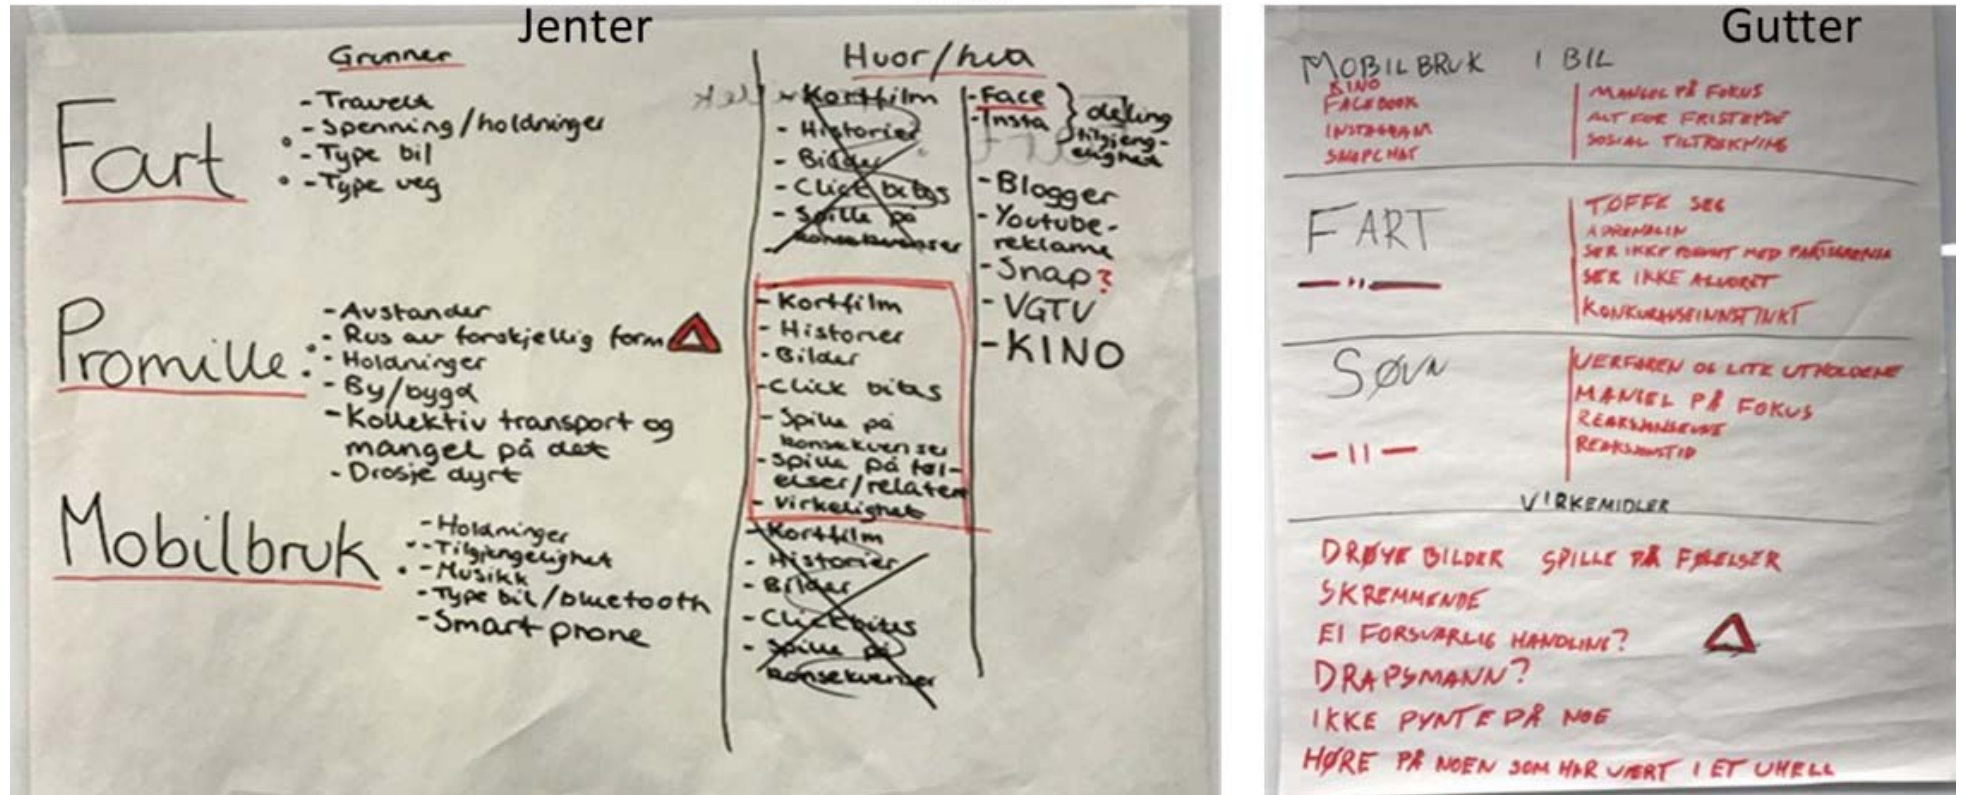 Jenter
Grunner
Fart
- Travelt
- Spenning/holdninger
- Type bil
- Type veg
Promille:
- Avstander
- Rus av forskjellig form
- Holdninger
- By/bygd
- Kollektiv transport og
mangel på det
- Drosje dyrt
Mobilbruk
- Holdninger
- Tilgjengelighet
- Musikk
- Type bil/bluetooth
- Smart phone
Hvor/hva
- Kortfilm
- Historier
- Bilder
- Click bites
- Spille på
konsekvenser
- Kortfilm
- Historier
- Bilder
- Click bites
- Spille på
konsekvenser
- Spille på føl-
elser/relater
- Virkelighet
- Kortfilm
- Historier
- Bilder
- Clickbites
- Spille på
konsekvenser
- Face
- Insta
deling
tilgjeng-
elighet
- Blogger
- Youtube-
reklame
- Snap?
- VGTV
- KINO
Gutter
MOBILBRUK I BIL
KINO
FACEBOOK
INSTAGRAM
SNAPCHAT
MANGEL PÅ FOKUS
ALT FOR FRISTENDE
SOSIAL TILTREKNING
FART
— " —
TØFFE SEG
ADRENALIN
SER IKKE MED
SER IKKE ALVORET
KONKURANSEINNSTINKT
SØVN
— 11 —
OG LITE
MANGEL PÅ FOKUS
REAKSJONSEVNE
REAKSJONSTID
VIRKEMIDLER
DRØYE BILDER SPILLE PÅ FØLELSER
SKREMMENDE
EI FORSVARLIG HANDLING?
DRAPSMANN?
IKKE PYNTE PÅ NOE
HØRE PÅ NOEN SOM HAR VÆRT I ET UHELL